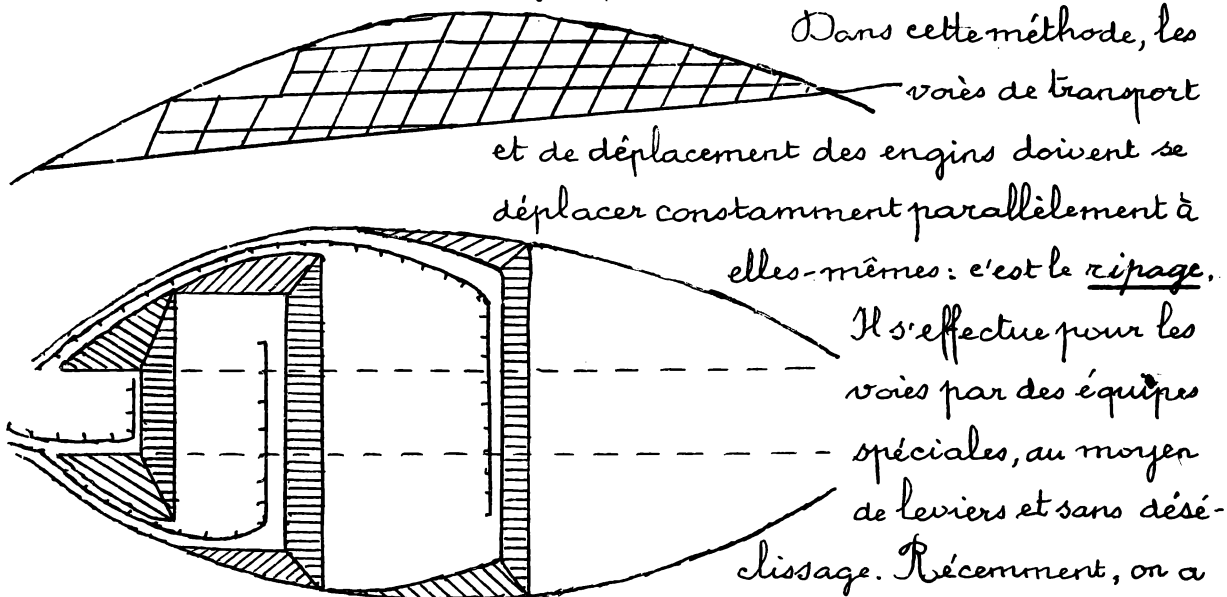 Dans cette méthode, les
voies de transport
et de déplacement des engins doivent se
déplacer constamment parallèlement à
elles-mêmes : c'est le ripage.
Il s'effectue pour les
voies par des équipes
spéciales, au moyen
de leviers et sans désé-
clissage. Récemment, on a